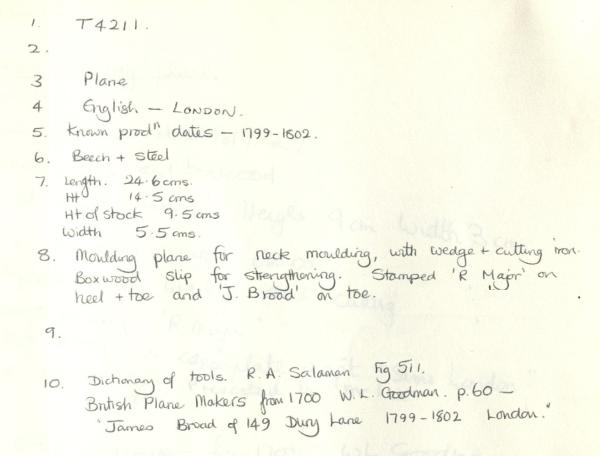 1. T4211.
2.
3 Plane
4 English – LONDON.
5. Known prodⁿ dates – 1799-1802.
6. Beech + steel
7. Length. 24.6 cms.
Ht 14.5 cms
Ht of stock 9.5 cms
Width 5.5 cms.
8. Moulding plane for neck moulding, with wedge + cutting iron.
Boxwood slip for strengthening. Stamped 'R Major' on
heel + toe and 'J. Broad' on toe.
9.
10. Dictionary of tools. R.A. Salaman Fig 511.
British Plane Makers from 1700 W.L. Goodman. p.60 –
"James Broad of 149 Dury Lane 1799-1802 London."